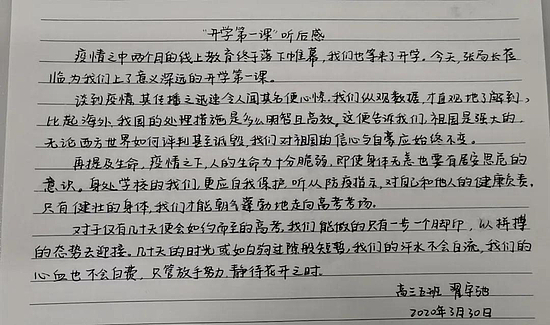 “开学第一课”听后感
疫情之中两个月的线上教育终于落下帷幕,我们也等来了开学。今天,张局长莅
临为我们上了意义深远的开学第一课。
谈到疫情,其传播之迅速令人闻其名便心惊。我们纵观数据,才直观地了解到,
比起海外,我国的处理措施是多么明智且高效。这便告诉我们,祖国是强大的,
无论西方世界如何评判甚至诋毁,我们对祖国的信心与自豪应始终不变。
再提及生命,疫情之下,人的生命力十分脆弱,即使身体无恙也要有居安思危的
意识。身处学校的我们,更应自我保护,听从防疫指示,对自己和他人的健康负责。
只有健壮的身体,我们才能朝气蓬勃地走向高考考场。
对于仅有几十天便会如约而至的高考,我们能做的只有一步一个脚印,以拼搏
的态势去迎接。几十天的时光或如白驹过隙般短暂,我们的汗水不会白流,我们的
心血也不会白费,只管放手努力,静待花开之时。
高三五班 翟宇弛
2020年3月30日